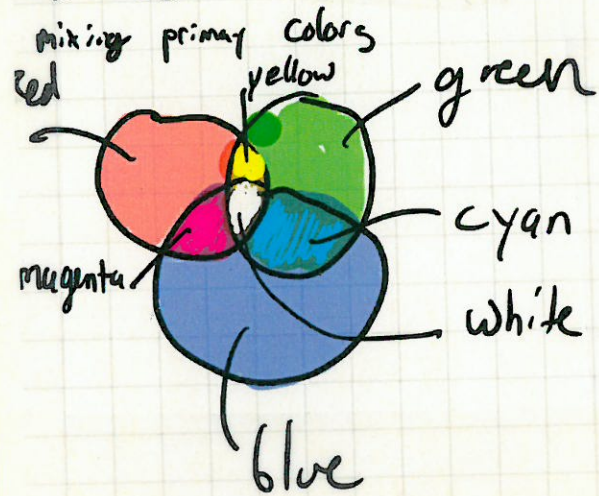 mixing primay colors
red
yellow
green
cyan
magenta
white
blue